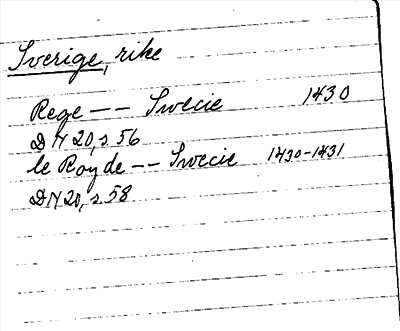 Sverige, rike
Rege -- Swecie 1430
DN 20, s 56
le Roy de -- Swecie 1430-1431
DN 20, s 58